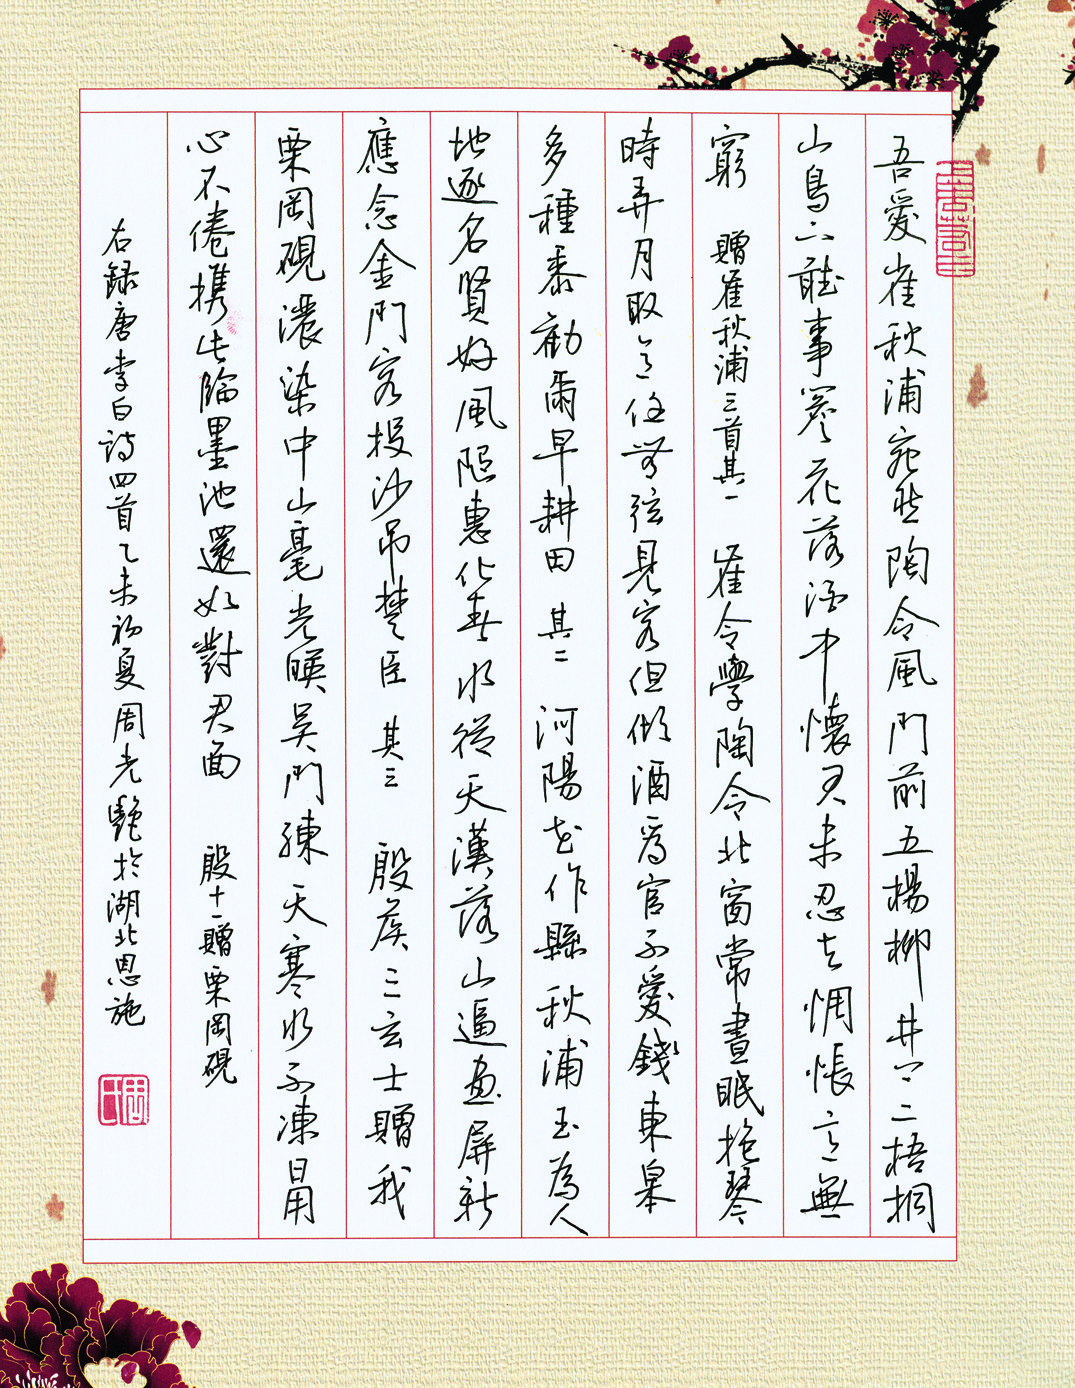 吾愛崔秋浦宛然陶令風門前五楊柳井上二梧桐
山鳥下聽事簷花落酒中懷君未忍去惆悵意無
窮 贈崔秋浦三首其一 崔令學陶令北窗常晝眠抱琴
時弄月取意任無弦見客但傾酒為官不愛錢東皋
多種黍勸爾早耕田 其二 河陽花作縣秋浦玉為人
地逐名賢好風隨惠化春水從天漢落山逼畫屏新
應念金門客投沙吊楚臣 其三 殷侯三玄士贈我
栗岡硯濃染中山毫光暎吳門練天寒水不凍日用
心不倦攜此臨墨池還如對君面 殷十一贈栗岡硯
右錄唐李白詩四首乙未初夏周光艷於湖北恩施
周氏